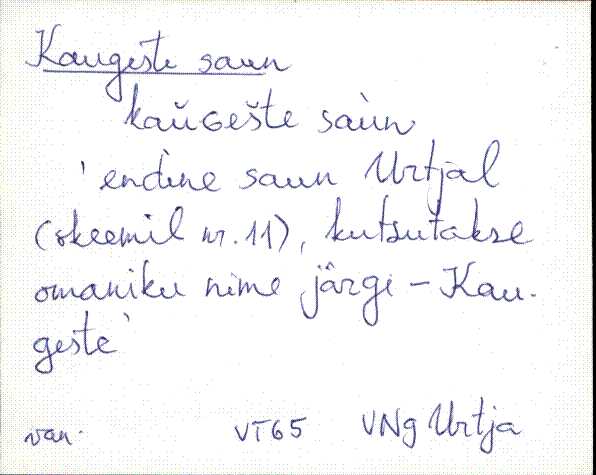 Kaugeste saun
kaŭGešte saùn
'endine saun Urtjal
(skeemil nr. 11), kutsutakse
omaniku nime järgi - Kau-
geste'
van. VT65 VNg Urtja